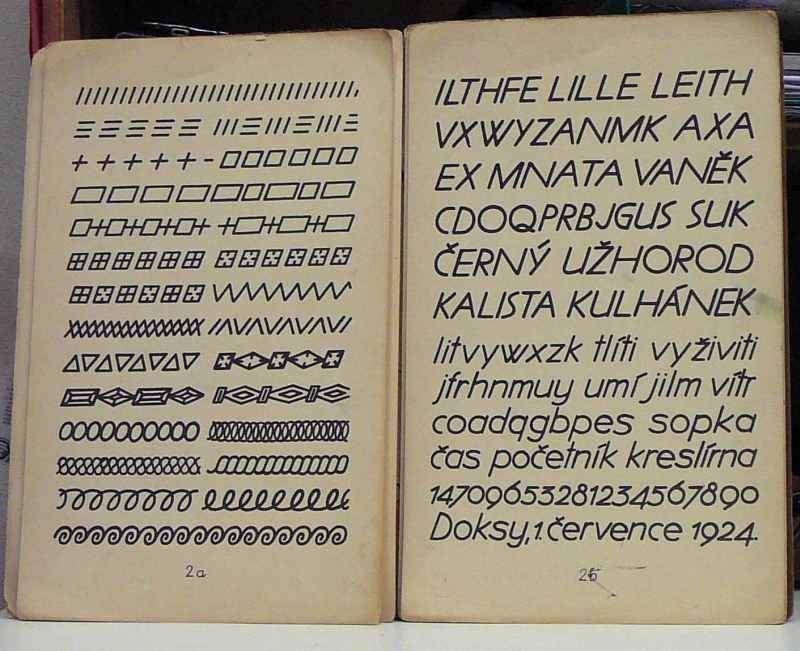 2a
ILTHFE LILLE LEITH
VXWYZANMK AXA
EX MNATA VANĚK
CDOQPRBJGUS SUK
ČERNÝ UŽHOROD
KALISTA KULHÁNEK
litvywxzk tlíti vyživiti
jfrhnmuy umí jilm vítr
coadqgbpes sopka
čas početník kreslírna
14709653281234567890
Doksy, 1. července 1924.
2b